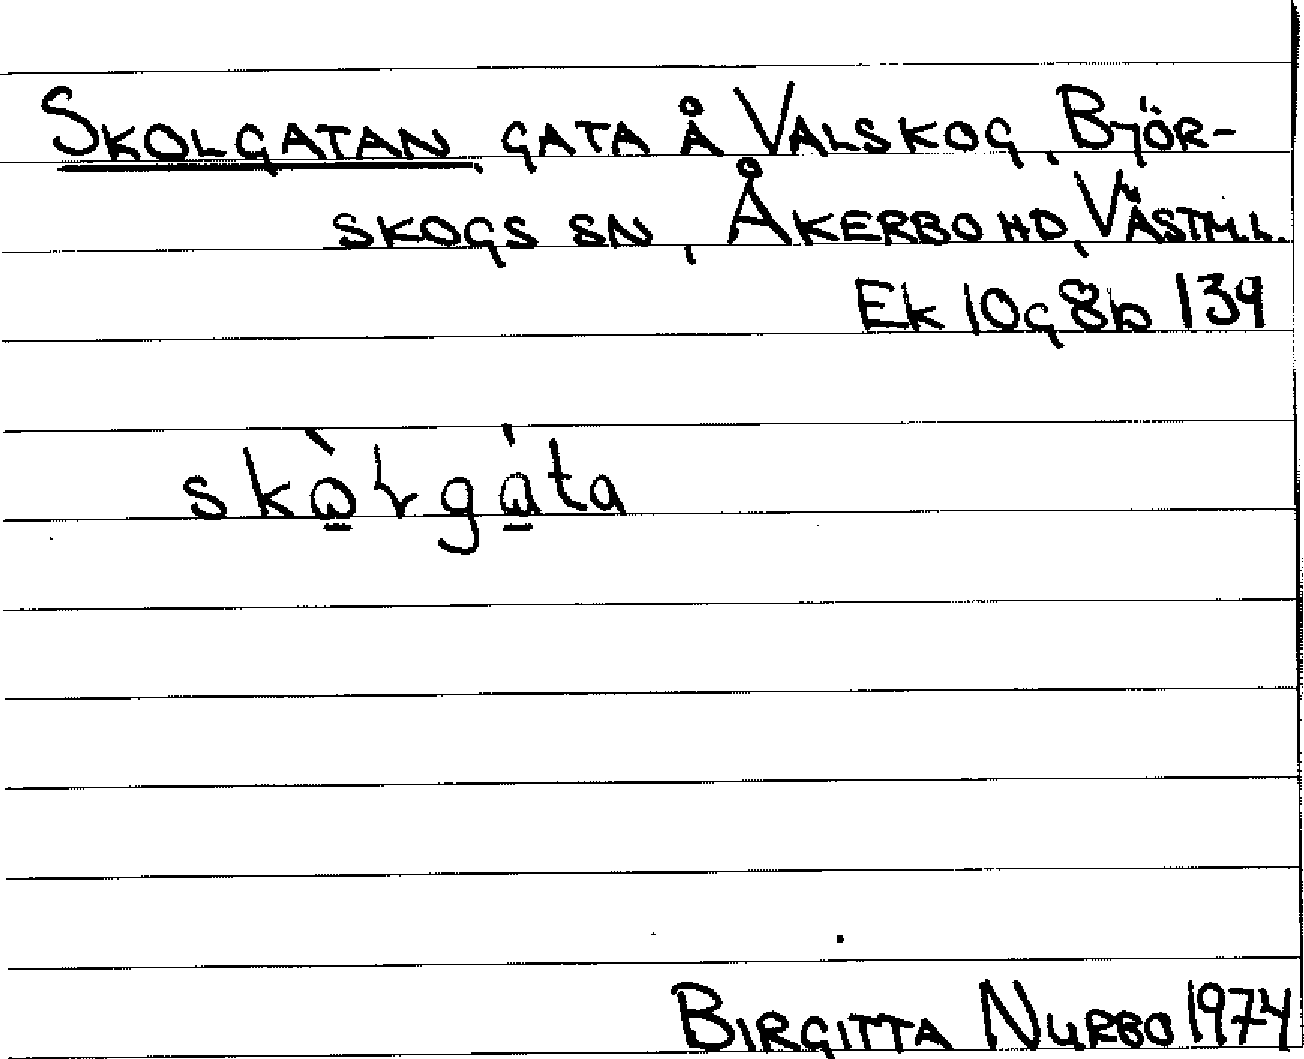 SKOLGATAN, GATA Å VALSKOG, BJÖR-
SKOGS SN, ÅKERBO HD, VÄSTM.L.
Ek 10g8b 139
BIRGITTA NURBO 1974